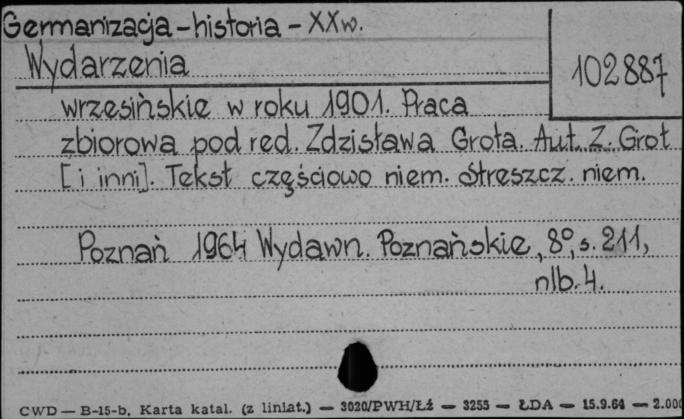 Germanizacja - historia - XX w.
Wydarzenia
102887
wrzesińskie w roku 1901. Praca
zbiorowa pod red. Zdzisława Grota. Aut. Z. Grot
[i inni]. Tekst częściowo niem. Streszcz. niem.
Poznań 1964 Wydawn. Poznańskie, 8°, s. 211,
nlb. 4.
CWD — B-15-b. Karta katal. (z liniat.) — 3020/PWH/Łź — 3255 — ŁDA — 15.9.64 — 2.000